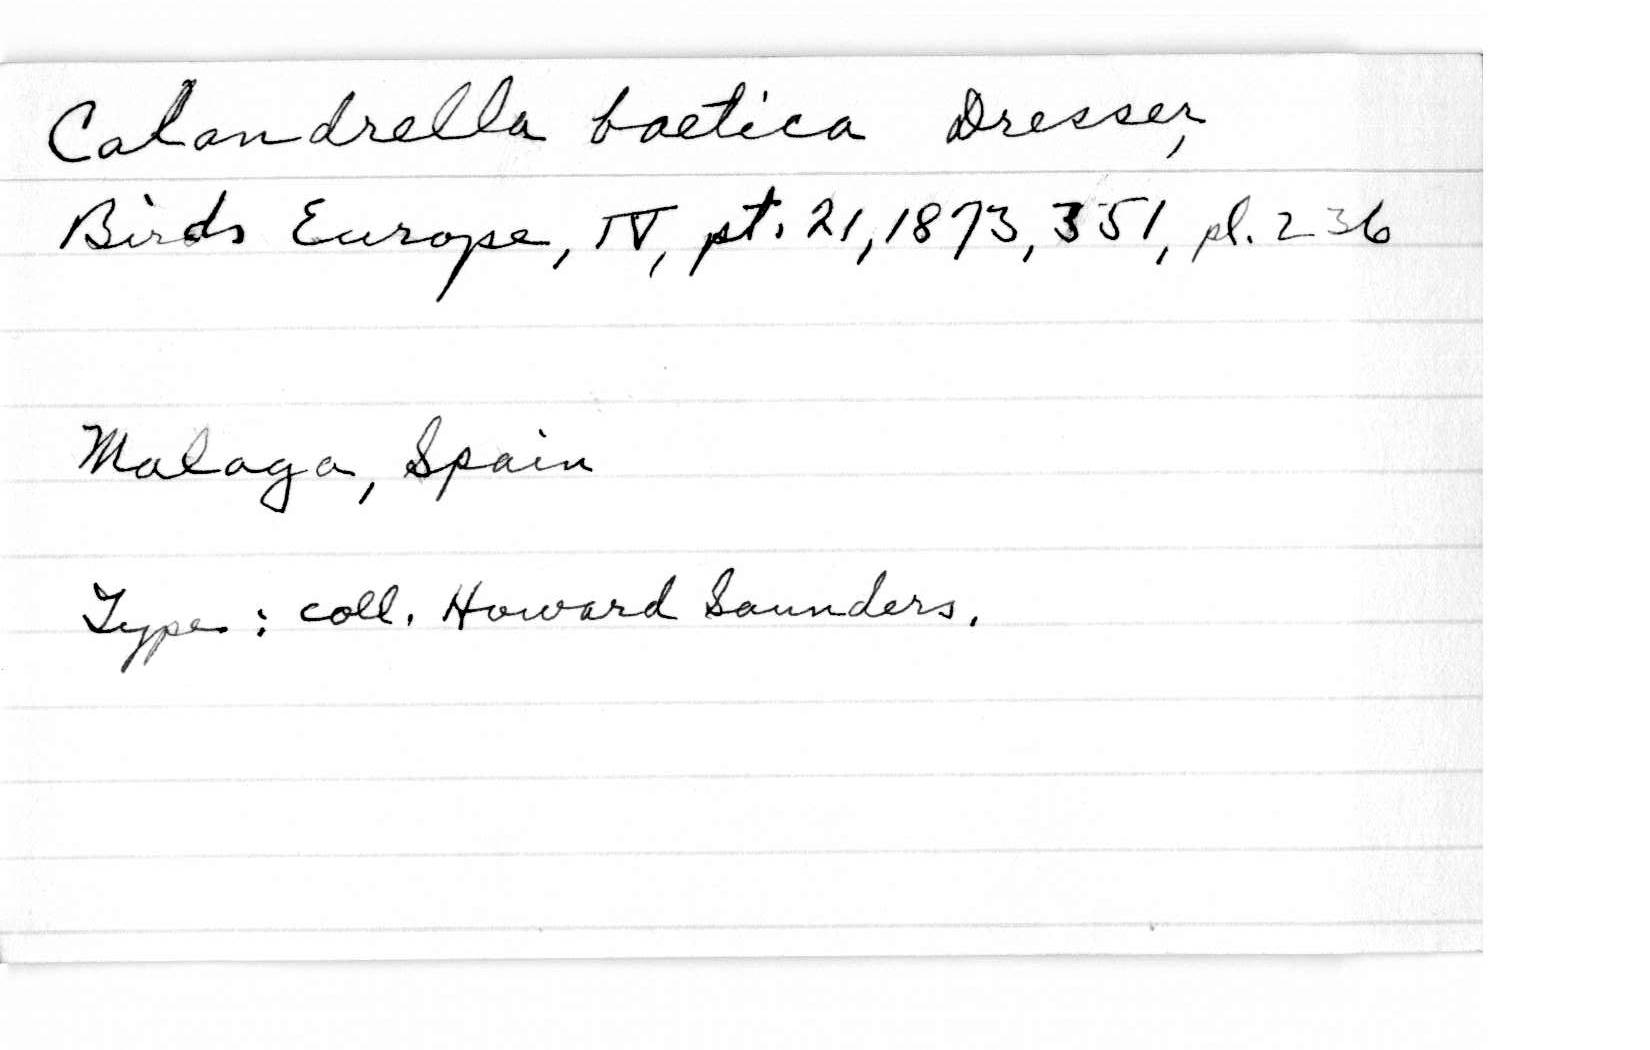 Calandrella baetica Dresser,
Birds Europe, IV, pt. 21, 1873, 351, pl. 236
Malaga, Spain
Type : coll. Howard Saunders.